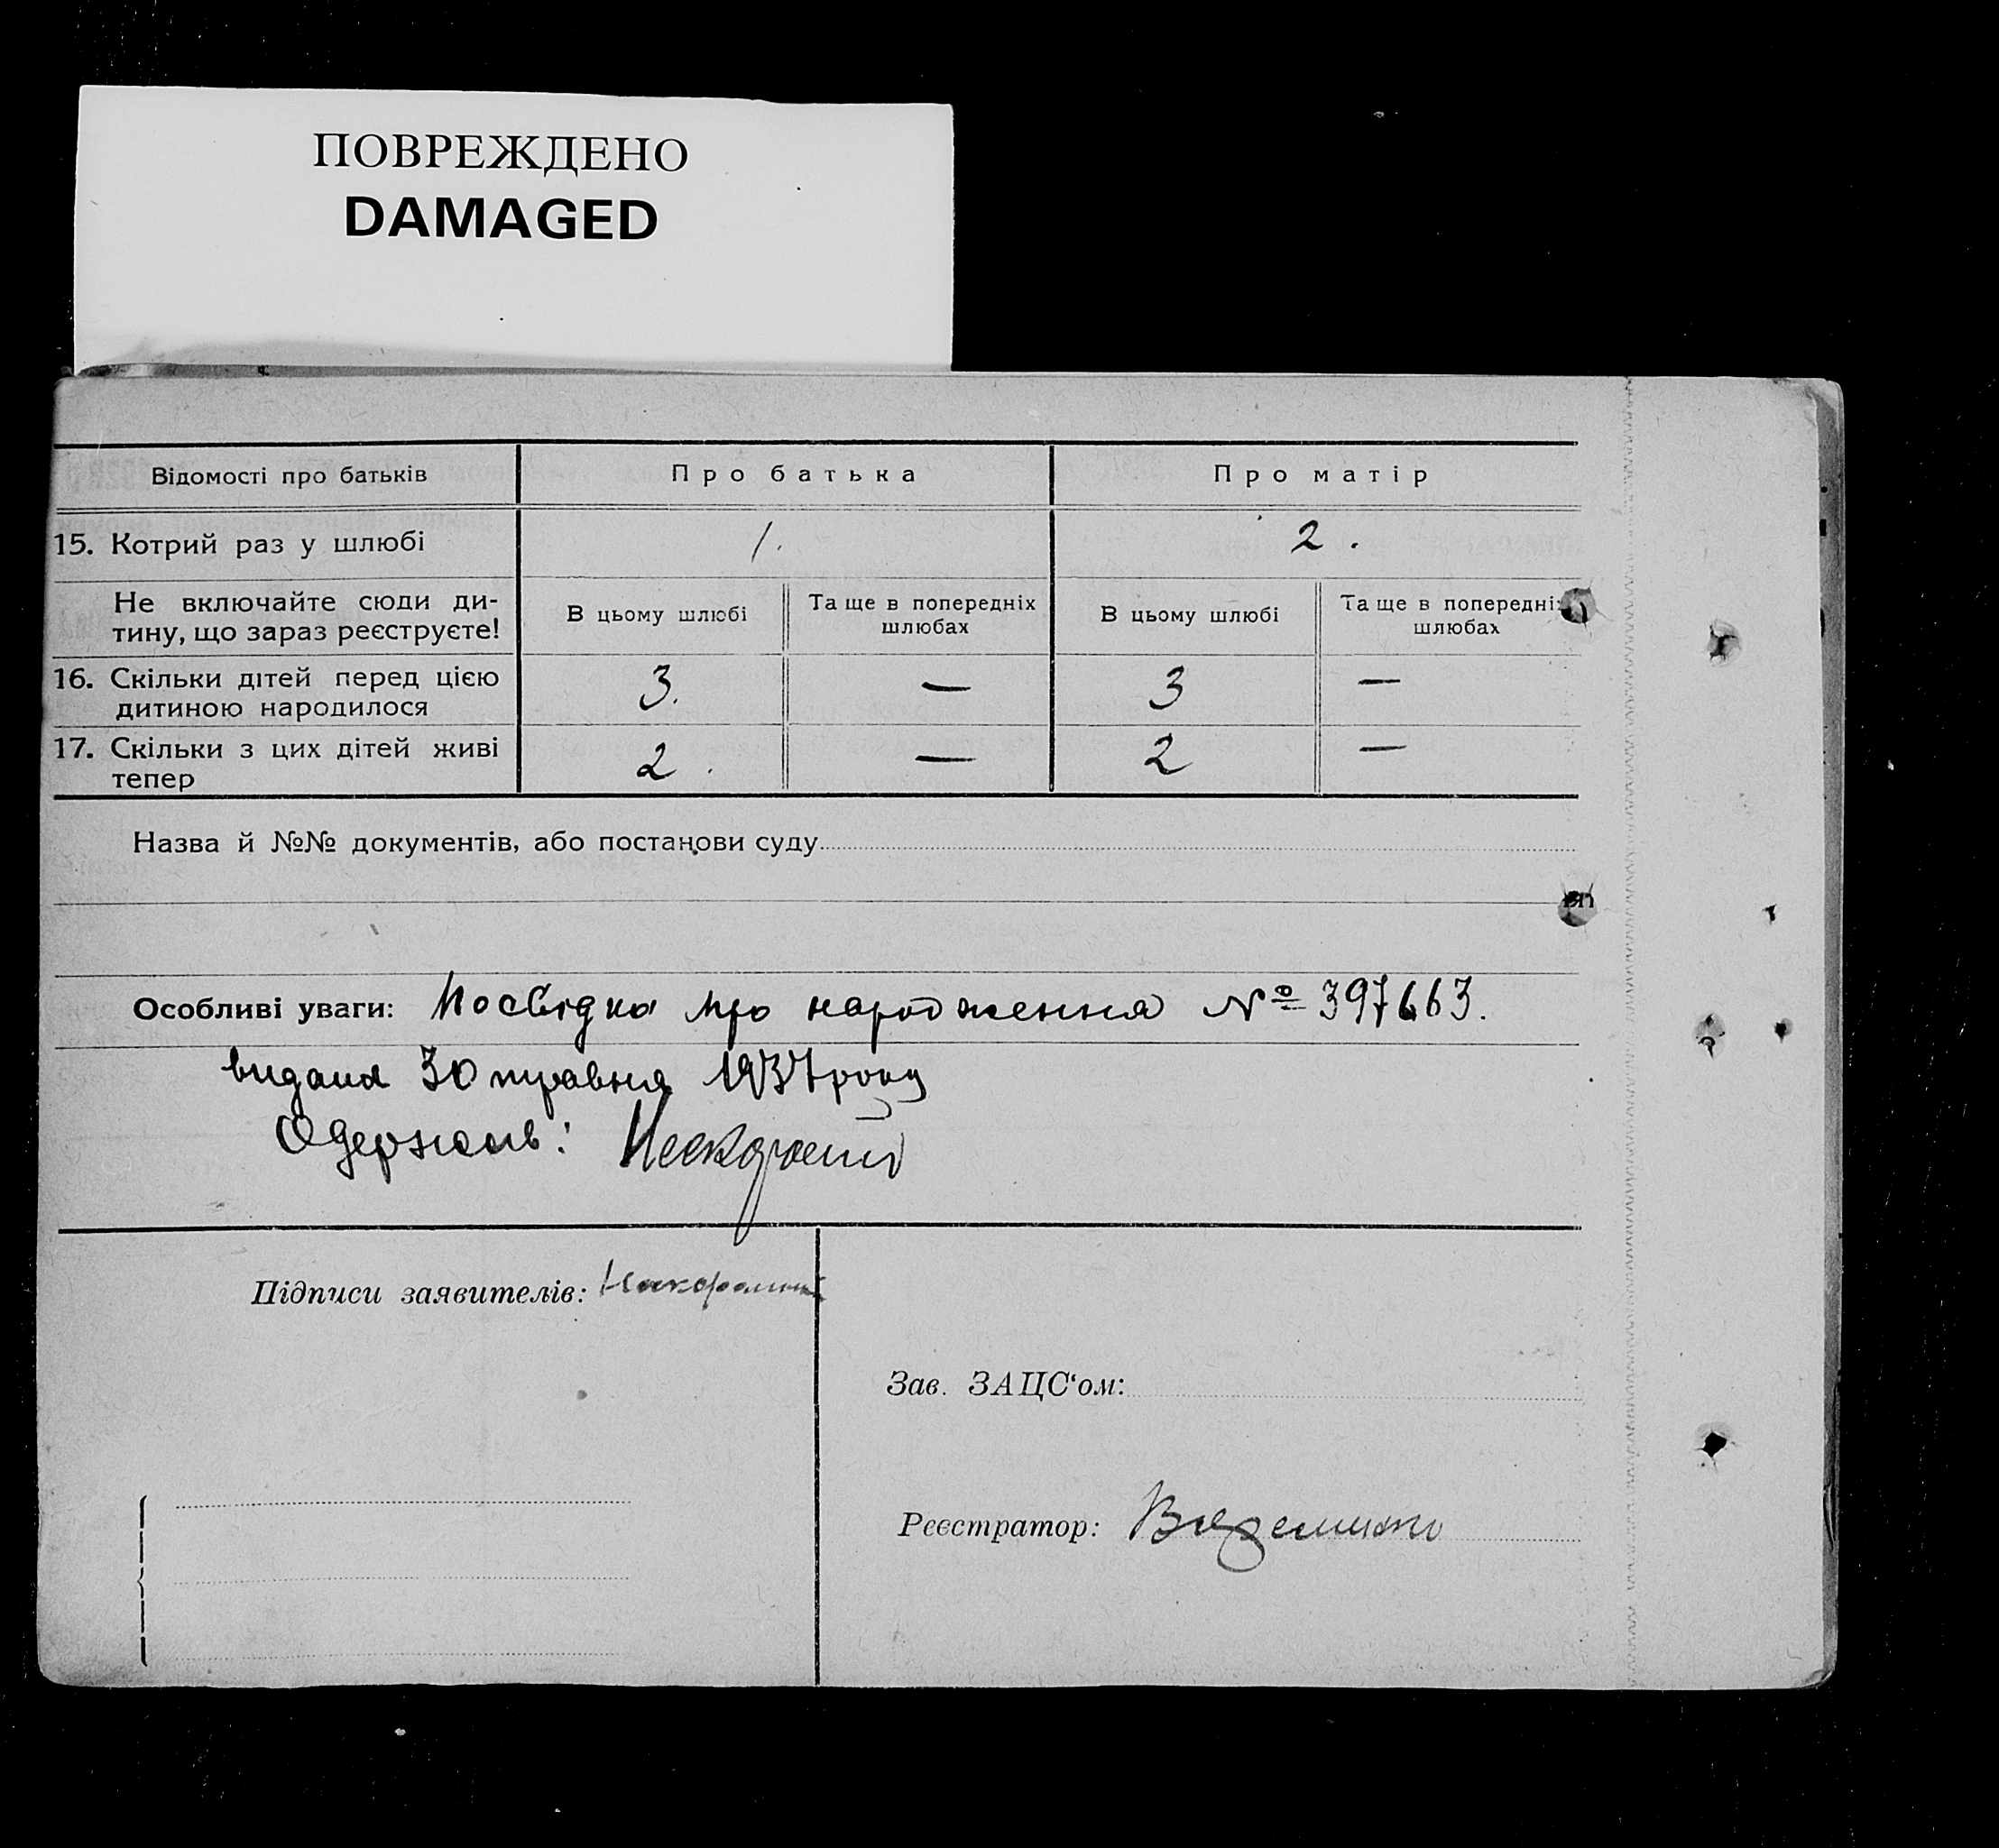 ПОВРЕЖДЕНО
DAMAGED
Відомості про батьків
Про батька
Про матір
15. Котрий раз у шлюбі
1.
2.
Не включайте сюди ди-
тину, що зараз реєструєте!
В цьому шлюбі
Та ще в попередніх
шлюбах
В цьому шлюбі
Та ще в попередніх
шлюбах
16. Скільки дітей перед цією
дитиною народилося
3.
—
3
—
17. Скільки з цих дітей живі
тепер
2.
—
2
—
Назва й №№ документів, або постанови суду
Особливі уваги: Посвідка про народження № 397663.
видана 30 травня 1937 року
Одержав:
Підписи заявителів:
Зав. ЗАЦС‘ом:
Реєстратор: